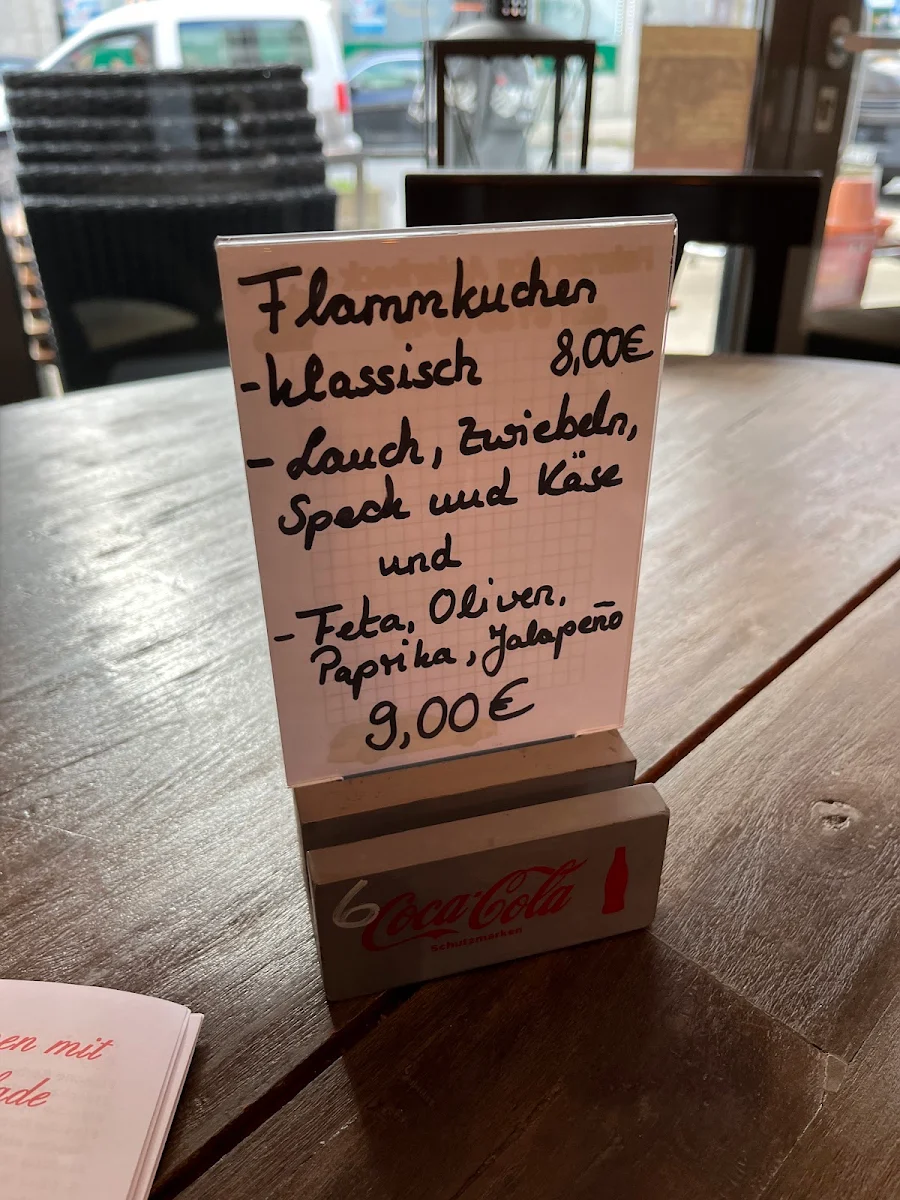 Flammkuchen
- klassisch 8,00€
- Lauch, Zwiebeln,
Speck und Käse
und
- Feta, Oliven,
Paprika, Jalapeño
9,00€
6 Coca-Cola
Schutzmarken
en mit
ade